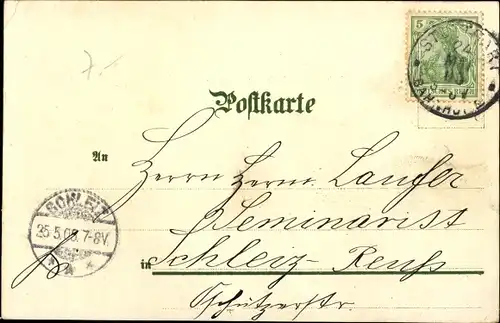 7.-
5
24
BAHNHOF
Postkarte
An
Herrn Herm. Laufer
Seminarist
SCHLEIZ
25.5.05. 7-8V.
in Schleiz-Reuss